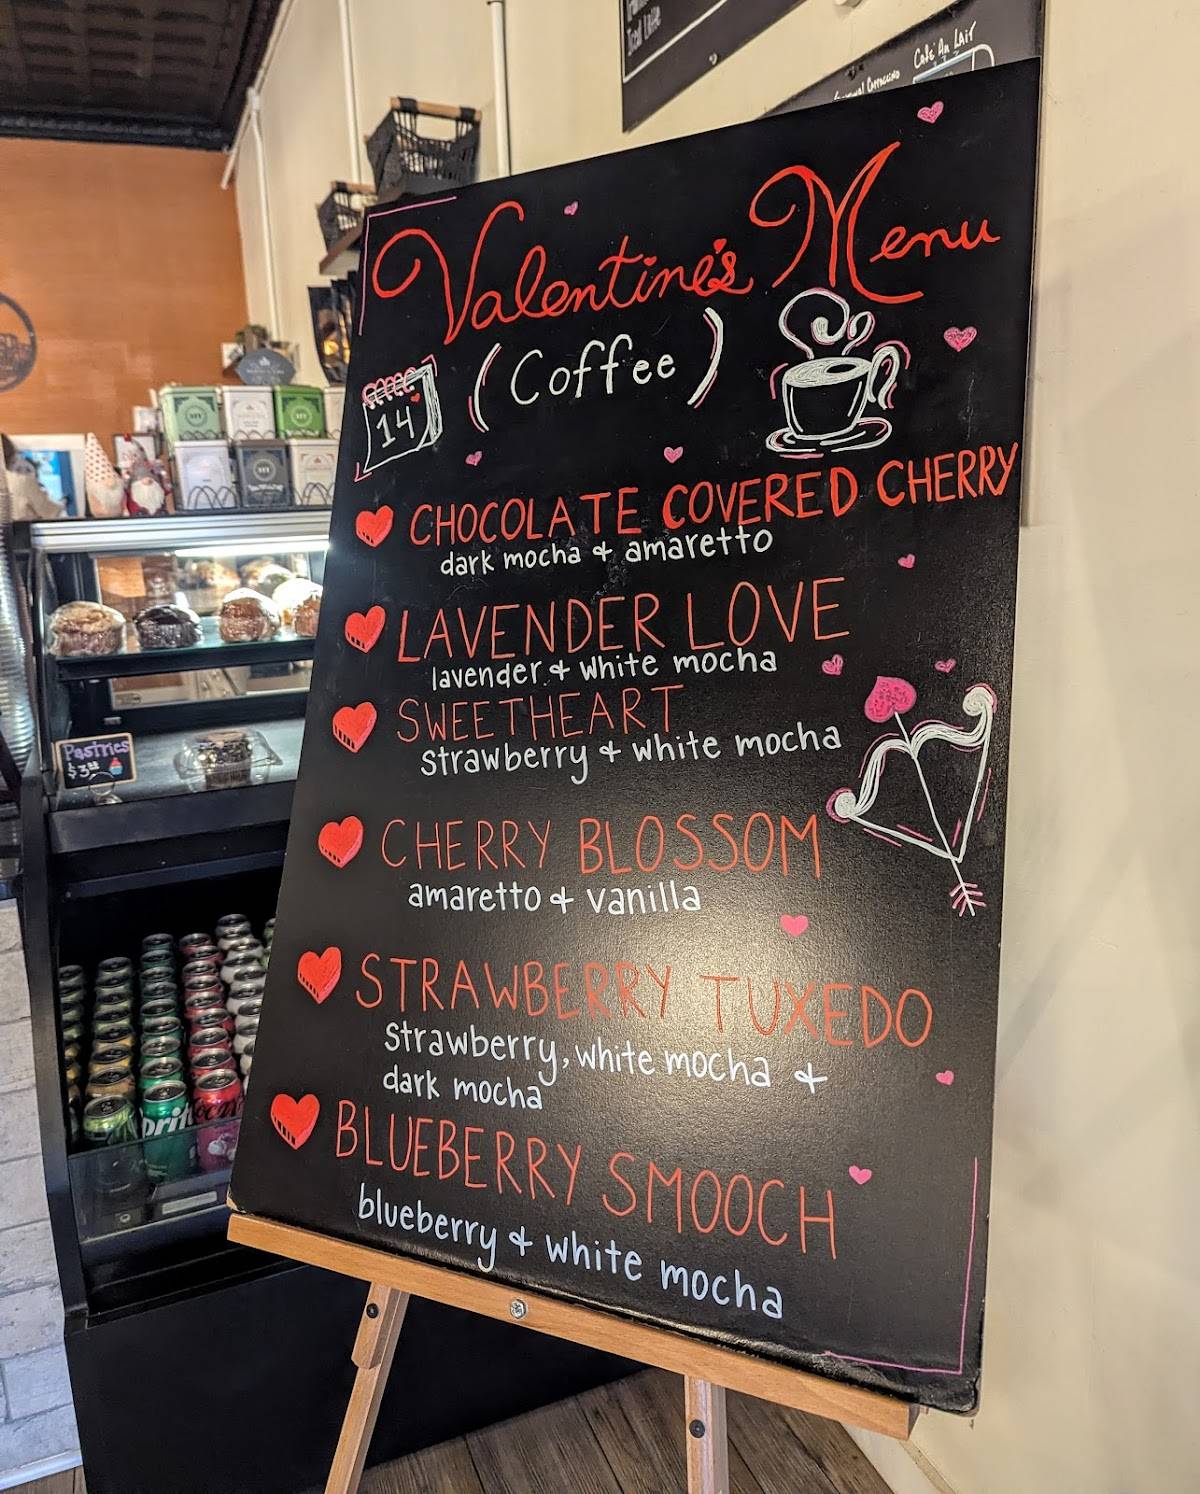 Iced Latte
Cafe Au Lait
Valentine's Menu
(Coffee)
14
CHOCOLATE COVERED CHERRY
dark mocha & amaretto
LAVENDER LOVE
lavender & white mocha
SWEETHEART
strawberry & white mocha
CHERRY BLOSSOM
amaretto & vanilla
STRAWBERRY TUXEDO
Strawberry, white mocha &
dark mocha
BLUEBERRY SMOOCH
blueberry & white mocha
Pastries
Sprite